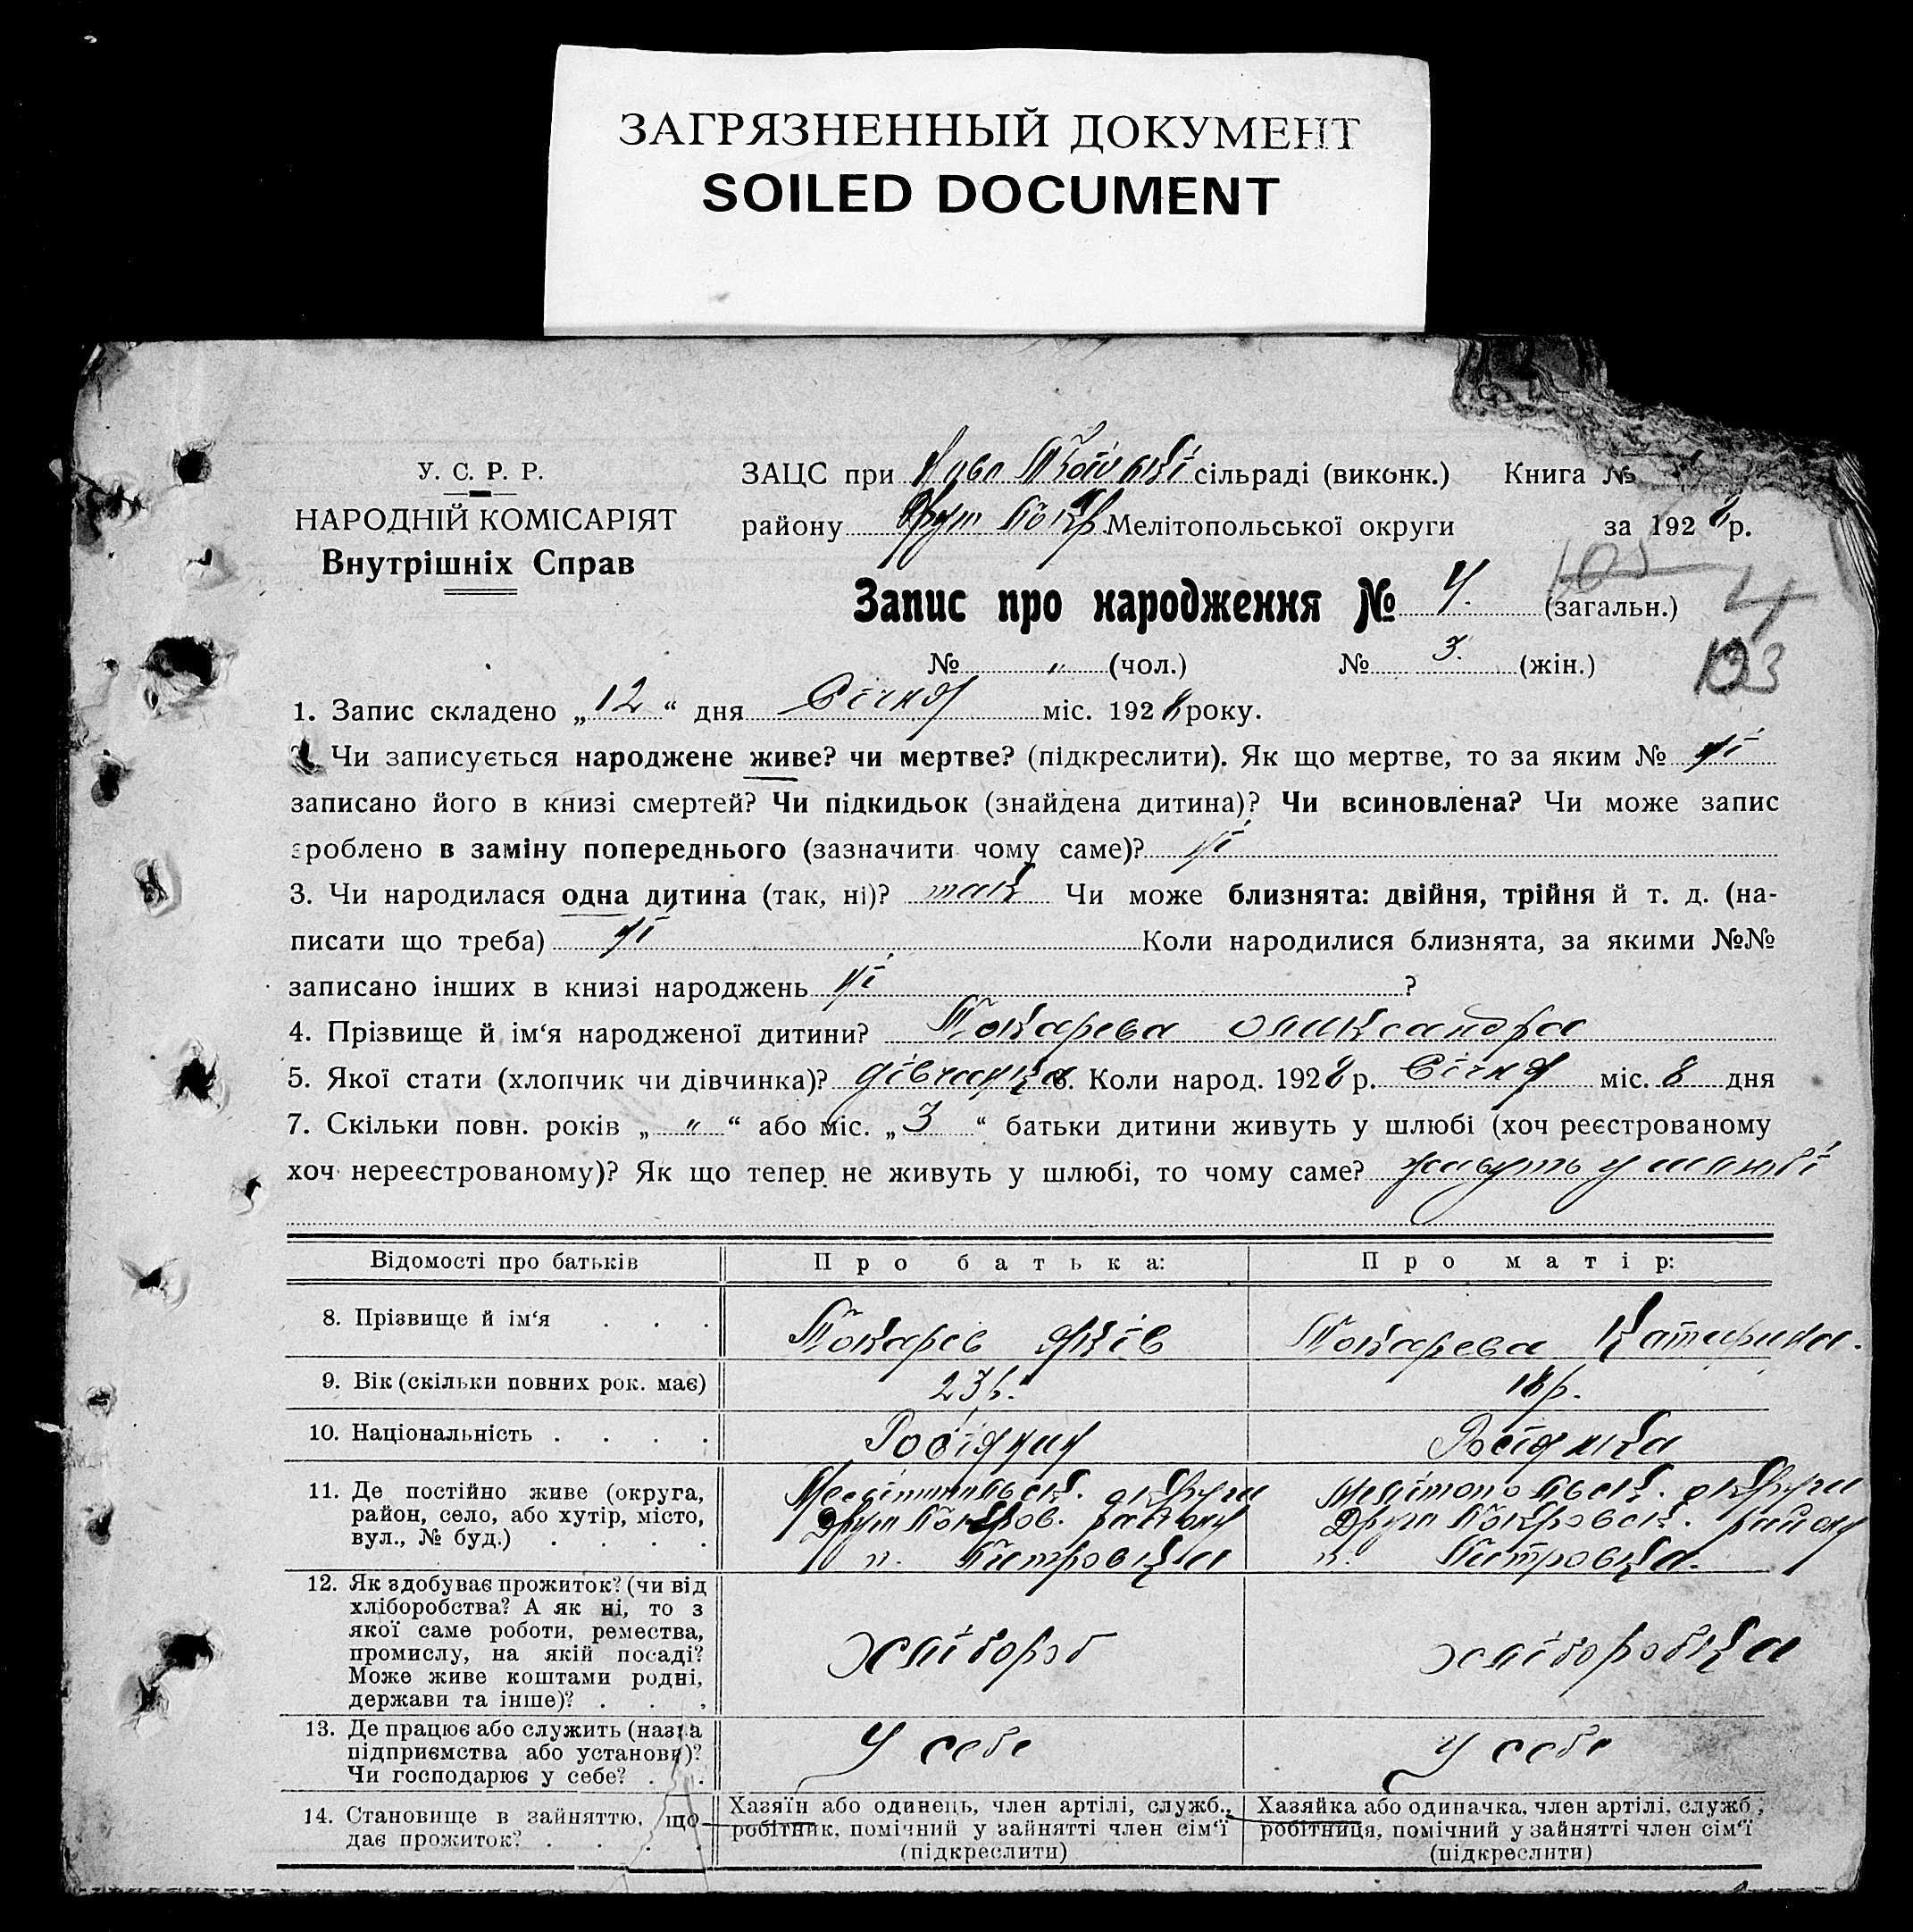 ЗАГРЯЗНЕННЫЙ ДОКУМЕНТ
SOILED DOCUMENT
У. С. Р. Р.
НАРОДНІЙ КОМІСАРІЯТ
Внутрішніх Справ
ЗАЦС при сільраді (виконк.) Книга №
району Друг Покр. Мелітопольської округи за 1928 р.
Запис про народження № 4. (загальн.)
105 4
№ „ (чол.) № 3. (жін.)
123
1. Запис складено „12“ дня Січня міс. 1928 року.
2. Чи записується народжене живе? чи мертве? (підкреслити). Як що мертве, то за яким № ні
записано його в книзі смертей? Чи підкидьок (знайдена дитина)? Чи всиновлена? Чи може запис
зроблено в заміну попереднього (зазначити чому саме)? ні
3. Чи народилася одна дитина (так, ні)? так Чи може близнята: двійня, трійня й т. д. (на-
писати що треба) ні Коли народилися близнята, за якими №№
записано інших в книзі народжень ні ?
4. Прізвище й ім‘я народженої дитини? Токарева Олександра
5. Якої стати (хлопчик чи дівчинка)? дівчинка 6. Коли народ. 1928 р. Січня міс. 8 дня
7. Скільки повн. років „ „ “ або міс. „3“ батьки дитини живуть у шлюбі (хоч реєстрованому
хоч нереєстрованому)? Як що тепер не живуть у шлюбі, то чому саме? живуть у шлюбі
Відомості про батьків Про батька: Про матір:
8. Прізвище й ім‘я . . . Токарев Яків Токарева Катерина.
9. Вік (скільки повних рок. має) 23 р. 18 р.
10. Національність . . . . Росіянин Росіянка
11. Де постійно живе (округа,
район, село, або хутір, місто,
вул., № буд.) . . . .
Мелітопільськ. округи
Друго Покров. району
п. Петровка
Мелітопольськ. округи
Друго Покровськ. району
п. Петровка.
12. Як здобуває прожиток? (чи від
хліборобства? А як ні, то з
якої саме роботи, ремества,
промислу, на якій посаді?
Може живе коштами родні,
держави та інше)? . . .
хлібороб хліборобка
13. Де працює або служить (назва
підприємства або установи)?
Чи господарює у себе? . .
У себе У себе
14. Становище в зайняттю, що
дає прожиток? . . . .
Хазяїн або одинець, член артілі, служб.,
робітник, помічний у зайнятті член сім‘ї
(підкреслити)
Хазяйка або одиначка, член артілі, служб.,
робітниця, помічний у зайнятті член сім‘ї
(підкреслити)